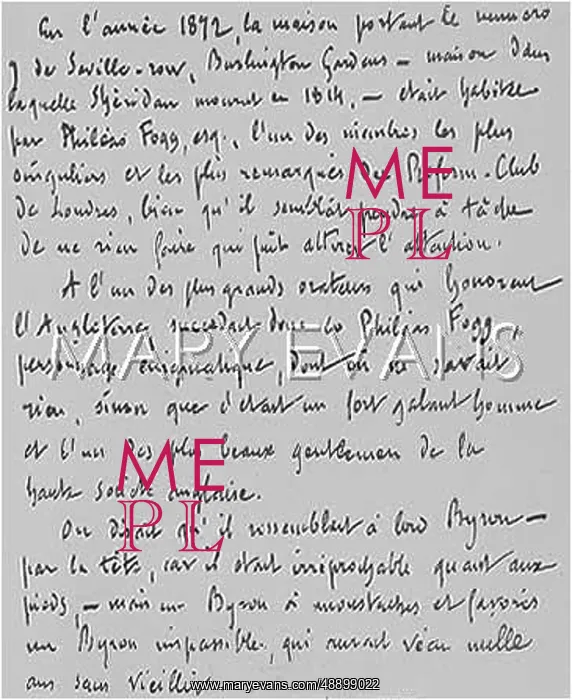 En l'année 1872, la maison portant le numero
7 de Saville-row, Burlington Gardens – maison dans
laquelle Shéridan mourut en 1814, – était habitée
par Philéas Fogg, esq., l'un des membres les plus
singuliers et les plus remarqués du Reform-Club
de Londres, bien qu'il semblât prendre à tâche
de ne rien faire qui pût attirer l'attention.
A l'un des plus grands orateurs qui honorent
l'Angleterre succédait donc ce Philéas Fogg,
personnage énigmatique, dont on ne savait
rien, sinon que c'était un fort galant homme
et l'un des plus beaux gentlemen de la
haute société anglaise.
On disait qu'il ressemblait à lord Byron –
par la tête, car il était irréprochable quant aux
pieds, – mais un Byron à moustaches et favoris
un Byron impassible, qui aurait vécu mille
ans sans vieillir
ME
PL
MARY EVANS
ME
PL
www.maryevans.com/48899022